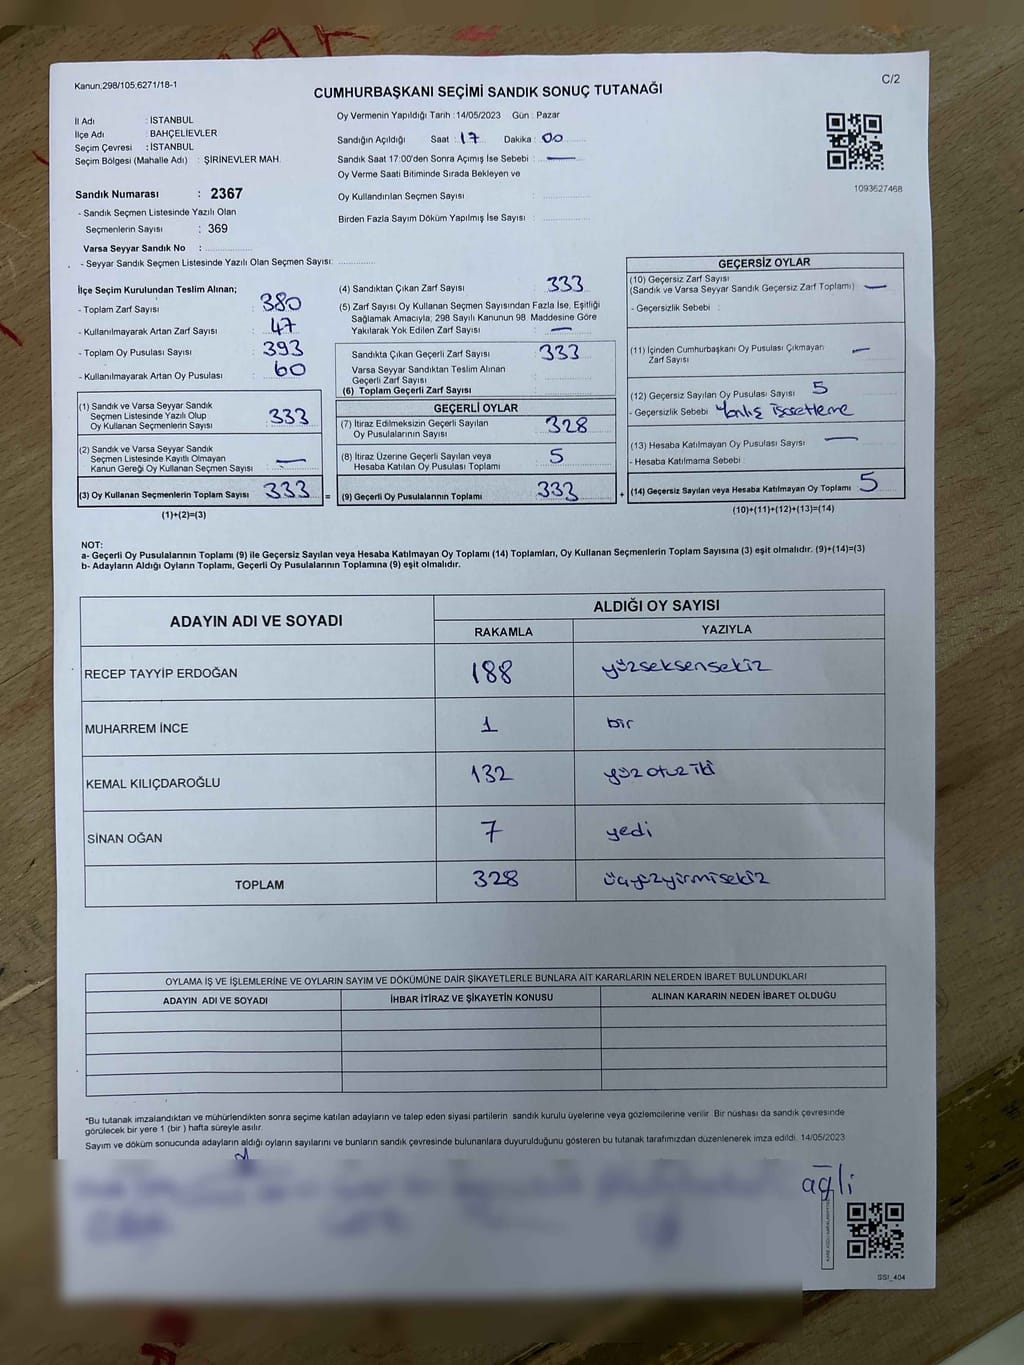 Kanun;298/105,6271/18-1
C/2
CUMHURBAŞKANI SEÇİMİ SANDIK SONUÇ TUTANAĞI
İl Adı : İSTANBUL
İlçe Adı : BAHÇELİEVLER
Seçim Çevresi : İSTANBUL
Seçim Bölgesi (Mahalle Adı) : ŞİRİNEVLER MAH.
Sandık Numarası : 2367
- Sandık Seçmen Listesinde Yazılı Olan
Seçmenlerin Sayısı : 369
Varsa Seyyar Sandık No :
- Seyyar Sandık Seçmen Listesinde Yazılı Olan Seçmen Sayısı:
Oy Vermenin Yapıldığı Tarih :14/05/2023 Gün : Pazar
Sandığın Açıldığı Saat : 17 Dakika : 00
Sandık Saat 17:00'den Sonra Açımış İse Sebebi : —
Oy Verme Saati Bitiminde Sırada Bekleyen ve
Oy Kullandırılan Seçmen Sayısı :
Birden Fazla Sayım Döküm Yapılmış İse Sayısı :
1093627468
İlçe Seçim Kurulundan Teslim Alınan;
- Toplam Zarf Sayısı : 380
- Kullanılmayarak Artan Zarf Sayısı : 47
- Toplam Oy Pusulası Sayısı : 393
- Kullanılmayarak Artan Oy Pusulası : 60
(1) Sandık ve Varsa Seyyar Sandık
Seçmen Listesinde Yazılı Olup
Oy Kullanan Seçmenlerin Sayısı : 333
(2) Sandık ve Varsa Seyyar Sandık
Seçmen Listesinde Kayıtlı Olmayan
Kanun Gereği Oy Kullanan Seçmen Sayısı : —
(3) Oy Kullanan Seçmenlerin Toplam Sayısı : 333
(1)+(2)=(3)
=
(4) Sandıktan Çıkan Zarf Sayısı : 333
(5) Zarf Sayısı Oy Kullanan Seçmen Sayısından Fazla İse, Eşitliği
Sağlamak Amacıyla; 298 Sayılı Kanunun 98. Maddesine Göre
Yakılarak Yok Edilen Zarf Sayısı : —
Sandıkta Çıkan Geçerli Zarf Sayısı : 333
Varsa Seyyar Sandıktan Teslim Alınan
Geçerli Zarf Sayısı :
(6) Toplam Geçerli Zarf Sayısı :
GEÇERLİ OYLAR
(7) İtiraz Edilmeksizin Geçerli Sayılan
Oy Pusulalarının Sayısı : 328
(8) İtiraz Üzerine Geçerli Sayılan veya
Hesaba Katılan Oy Pusulası Toplamı : 5
(9) Geçerli Oy Pusulalarının Toplamı : 333
+
GEÇERSİZ OYLAR
(10) Geçersiz Zarf Sayısı
(Sandık ve Varsa Seyyar Sandık Geçersiz Zarf Toplamı) : —
- Geçersizlik Sebebi :
(11) İçinden Cumhurbaşkanı Oy Pusulası Çıkmayan : —
Zarf Sayısı
(12) Geçersiz Sayılan Oy Pusulası Sayısı : 5
- Geçersizlik Sebebi Yanlış işaretleme
(13) Hesaba Katılmayan Oy Pusulası Sayısı : —
- Hesaba Katılmama Sebebi :
(14) Geçersiz Sayılan veya Hesaba Katılmayan Oy Toplamı : 5
(10)+(11)+(12)+(13)=(14)
NOT:
a- Geçerli Oy Pusulalarının Toplamı (9) ile Geçersiz Sayılan veya Hesaba Katılmayan Oy Toplamı (14) Toplamları, Oy Kullanan Seçmenlerin Toplam Sayısına (3) eşit olmalıdır. (9)+(14)=(3)
b- Adayların Aldığı Oyların Toplamı, Geçerli Oy Pusulalarının Toplamına (9) eşit olmalıdır.
ADAYIN ADI VE SOYADI ALDIĞI OY SAYISI
RAKAMLA YAZIYLA
RECEP TAYYİP ERDOĞAN 188 yüzseksensekiz
MUHARREM İNCE 1 bir
KEMAL KILIÇDAROĞLU 132 yüz otuz iki
SİNAN OĞAN 7 yedi
TOPLAM 328 üçyüzyirmisekiz
OYLAMA İŞ VE İŞLEMLERİNE VE OYLARIN SAYIM VE DÖKÜMÜNE DAİR ŞİKAYETLERLE BUNLARA AİT KARARLARIN NELERDEN İBARET BULUNDUKLARI
ADAYIN ADI VE SOYADI İHBAR İTİRAZ VE ŞİKAYETİN KONUSU ALINAN KARARIN NEDEN İBARET OLDUĞU
*Bu tutanak imzalandıktan ve mühürlendikten sonra seçime katılan adayların ve talep eden siyasi partilerin sandık kurulu üyelerine veya gözlemcilerine verilir. Bir nüshası da sandık çevresinde
görülecek bir yere 1 (bir) hafta süreyle asılır.
Sayım ve döküm sonucunda adayların aldığı oyların sayılarını ve bunların sandık çevresinde bulunanlara duyurulduğunu gösteren bu tutanak tarafımızdan düzenlenerek imza edildi. 14/05/2023
ağli
SSI_404